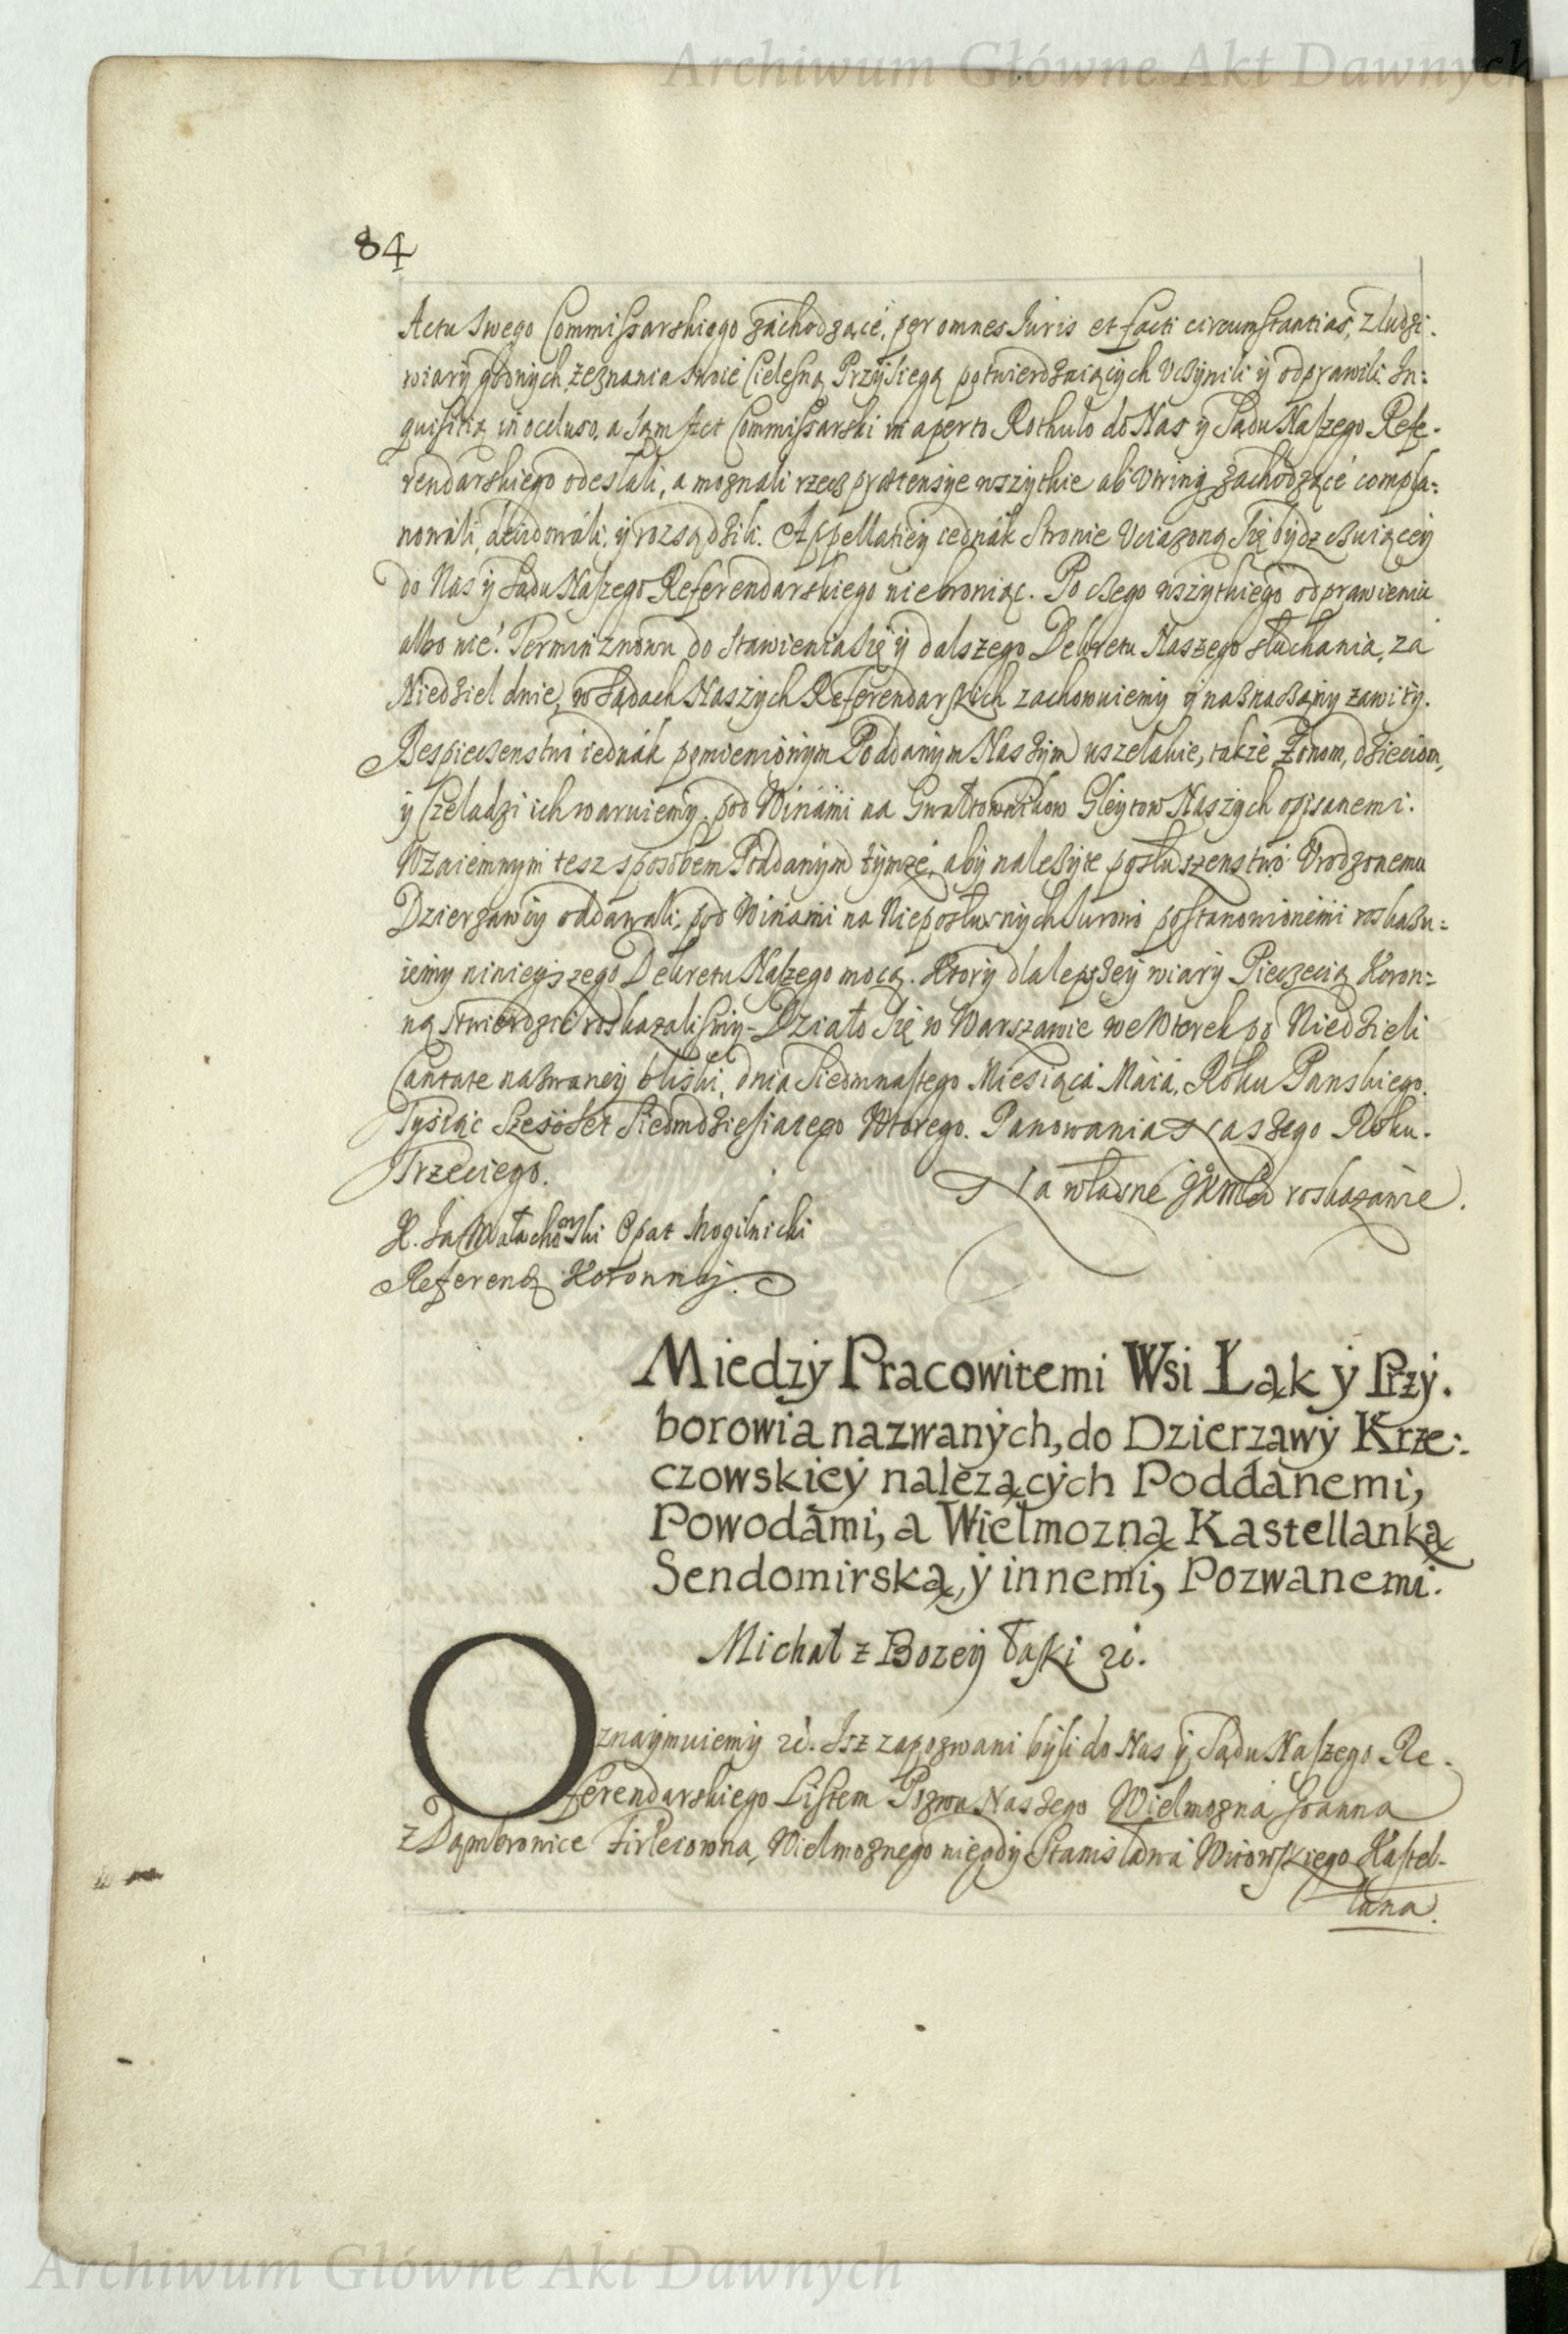 Archiwum Główne Akt Dawnych
84
Actu swego Commissarskiego záchodzące, per omnes Iuris et facti circumstantias, z ludzi
wiary godnych, zeznania swoie Cielesną Przysięgą potwierdzaiących Uczynili y odprawili. In=
quisitią in occluso, a sam Act Commissarski in aperto Rothulo do Nas y Sądu Naszego Refe-
rendarskiego odesłali, a mognali rzecz prætensye wszytkie ab utrinq zachodzące compla=
nowáli, y rozsądzili. Appellatiey iednák Stronie Uciązoną Się bydz czuiącey
do Nas y Sądu Naszego Referendarskiego niebroniąc. Po czego wszytkiego odprawieniu
albo nie. Termin znowu do stawienia się y dalszego Dekretu Naszego słuchania, zá
Niedziel dnie, w Sądach Naszych Referendarskich zachowuiemy y naznaczamy zawity.
Bespieczenstwo iednák pomienionym Poddanym Naszym wszelakie, także Żonom, dzieciom,
y Czeladzi ich waruiemy, pod Winámi na Gwałtownikow Gleytow Naszych opisanemi.
Wzaiemnym tesz sposobem Poddanym tymże, aby należyte posłuszenstwo Urodzonemu
Dzierzawcy oddawali, pod Winami na Nieposłusznych Surowo postanowionemi roskazu=
iemy ninieyszego Dekretu Naszego mocą. Ktory dla lepszey wiary Pieczęcią Koron=
ną stwierdzić roskazalismy. Działo Się w Warszawie we Wtorek po Niedzieli
Cantate nazwaney bliski, dnia Siedmnastego Miesiąca Maia, Roku Panskiego.
Tysiąc Szescset Siedmdziesiatego Wtorego. Panowania Naszego Roku.
Trzeciego.
Na własne JKMści roskazanie.
K. Ja Małachowski Opat Mogilnicki
Referend Koronny.
Miedzy Pracowitemi Wsi Łąk y Przy.
borowia nazwanych, do Dzierzawy Krze=
czowskiey należących Poddanemi,
Powodámi, a Wielmozną Kastellanką
Sendomirską, y innemi, Pozwanemi.
Michał z Bozey łaski etc.
Oznaymuiemy etc. Isz zapozwani byli do Nas y Sądu Naszego Re-
ferendarskiego Listem Pozwu Naszego Wielmozna Joanna
z Dąmbrowice Firleiowna, Wielmoznego niegdy Stanisława Witowskiego Kastel-
lana.
Archiwum Główne Akt Dawnych